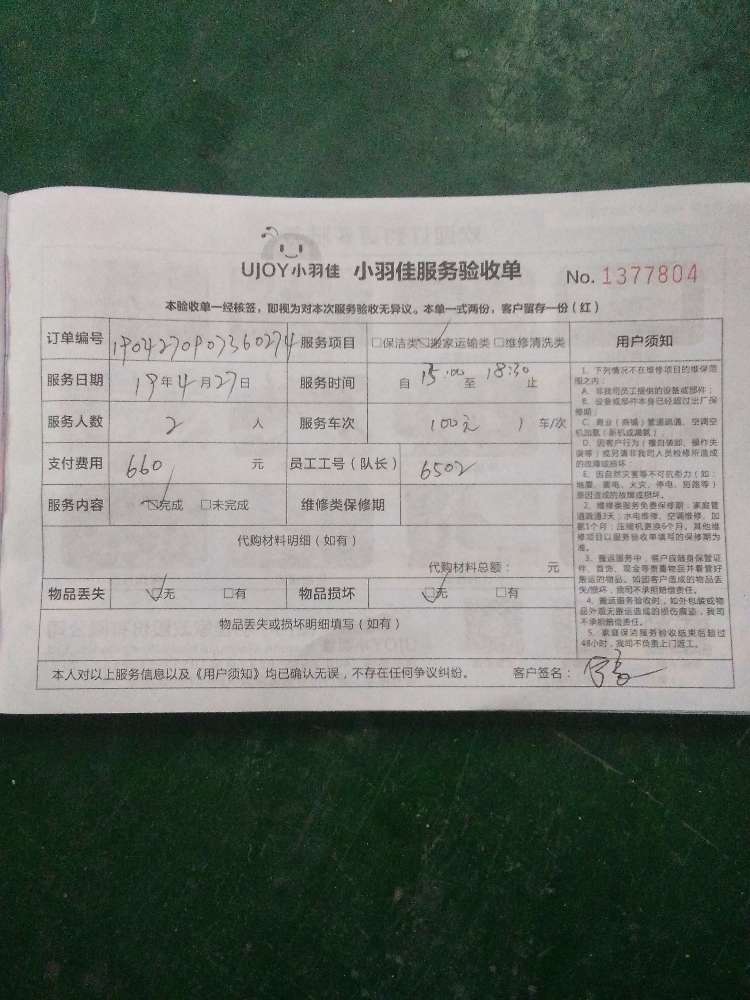 UJOY小羽佳 小羽佳服务验收单 No. 1377804
本验收单一经核签，即视为对本次服务验收无异议。本单一式两份，客户留存一份（红）
订单编号 1904270907360274 服务项目 □保洁类 ☑搬家运输类 □维修清洗类
服务日期 19年4月27日 服务时间 自 15:00 至 18:30 止
服务人数 2 人 服务车次 100元 ） 车/次
支付费用 660 元 员工工号（队长） 6502
服务内容 ☑完成 □未完成 维修类保修期
代购材料明细（如有）
代购材料总额： 元
物品丢失 ☑无 □有 物品损坏 ☑无 □有
物品丢失或损坏明细填写（如有）
本人对以上服务信息以及《用户须知》均已确认无误，不存在任何争议纠纷。 客户签名：
用户须知
1、下列情况不在维修项目的维保范
围之内：
A、非我司员工提供的设备或部件；
B、设备或部件本身已经超过出厂保
修期；
C、商业（商铺）管道疏通、空调空
机加氟（新机或漏氟）
D、因客户行为（擅自装卸、操作失
误等）或另请非我司人员检修所造成
的故障或损坏
E、因自然灾害等不可抗拒力（如：
地震、雷电、火灾、停电、短路等）
原因造成的故障或损坏。
2、维修类服务免费保修期：家庭管
道疏通3天；水电维修、空调维修、加
氟1个月；压缩机更换6个月。其他维
修项目以服务验收单填写的保修期为
准。
3、搬运服务中，客户应随身保管证
件、首饰、现金等贵重物品并看管好
搬运的物品。如因客户造成的物品丢
失/损坏，我司不承担赔偿责任。
4、搬运服务验收时，如外包装或物
品外观无搬运造成的损伤痕迹，我司
不承担赔偿责任。
5、家庭保洁服务验收结束后超过
48小时，我司不负责上门返工。